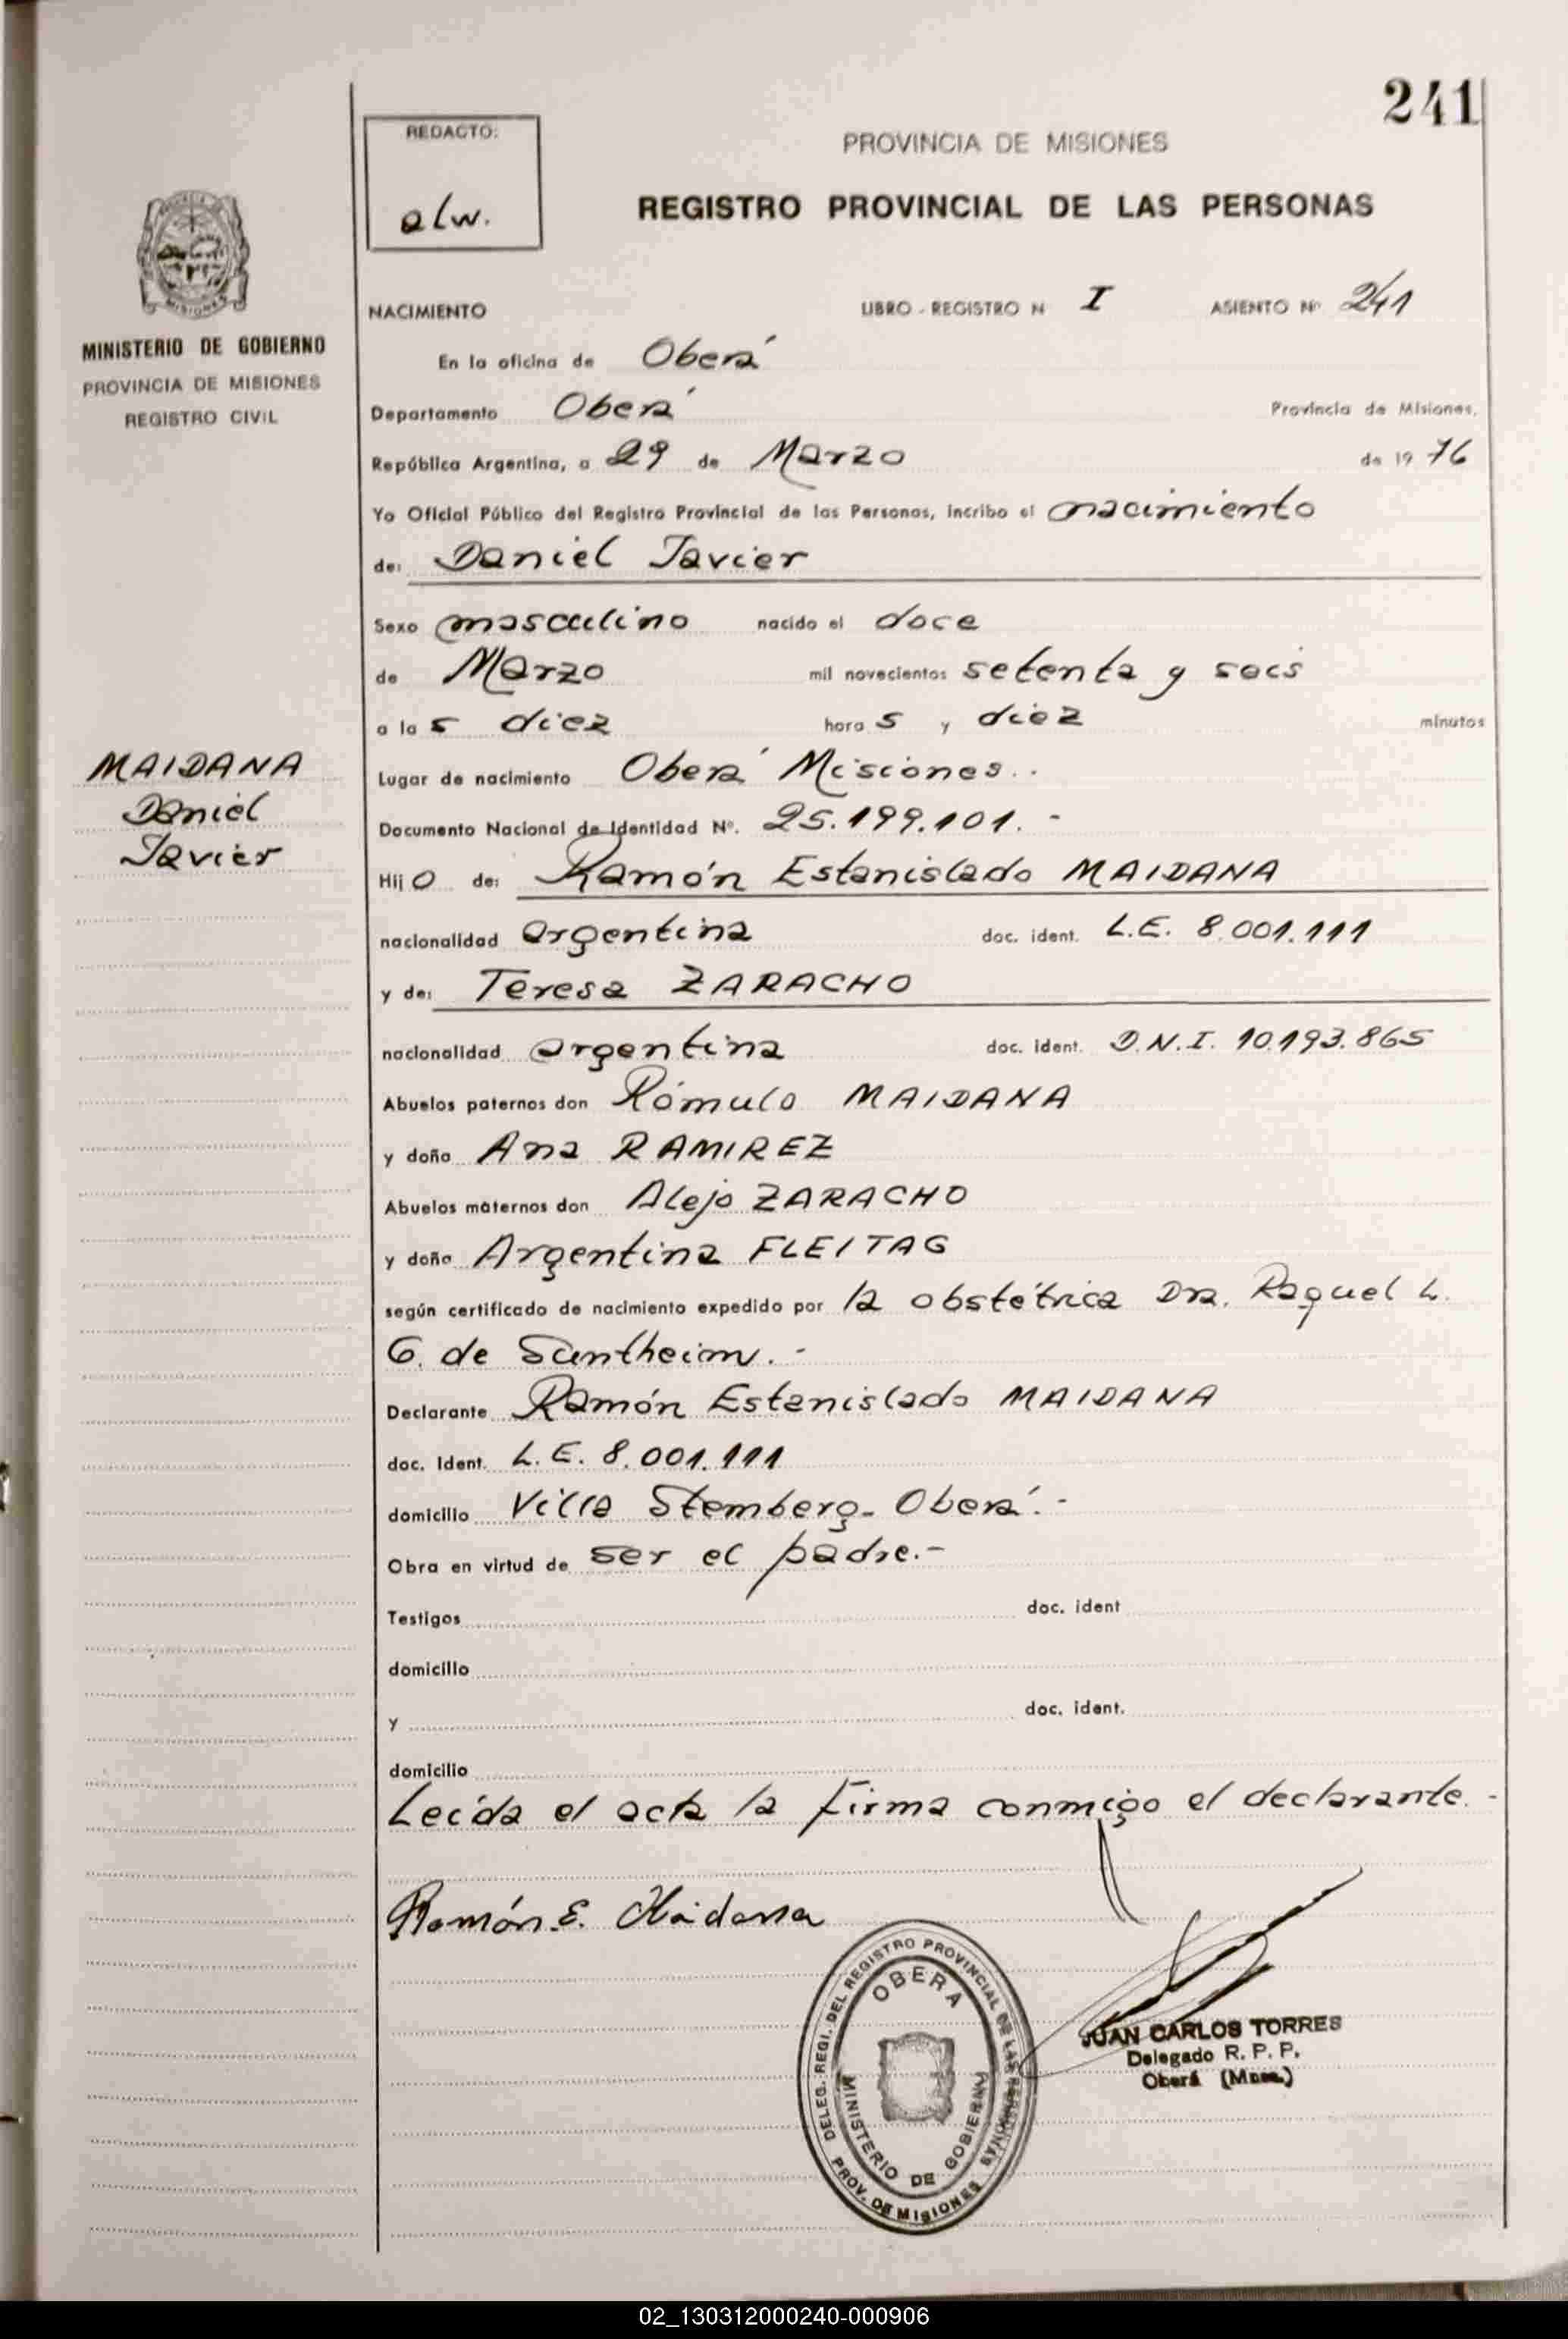 241
REDACTO:
alw.
PROVINCIA DE MISIONES
REGISTRO PROVINCIAL DE LAS PERSONAS
MINISTERIO DE GOBIERNO
PROVINCIA DE MISIONES
REGISTRO CIVIL
NACIMIENTO LIBRO - REGISTRO N I ASIENTO Nº 241
En la oficina de Oberá
Departamento Oberá Provincia de Misiones,
República Argentina, a 29 de Marzo de 19 76
Yo Oficial Público del Registro Provincial de las Personas, incribo el nacimiento
de: Daniel Javier
Sexo masculino nacido el doce
de Marzo mil novecientos setenta y seis
a la s diez hora s y diez minutos
MAIDANA
Daniel
Javier
Lugar de nacimiento Oberá Misiones..
Documento Nacional de Identidad Nº. 25.199.101. -
Hij o de: Ramón Estanislado MAIDANA
nacionalidad argentina doc. ident. L.E. 8.001.111
y de: Teresa ZARACHO
nacionalidad argentina doc. ident. D.N.I. 10.193.865
Abuelos paternos don Rómulo MAIDANA
y doña Ana RAMIREZ
Abuelos maternos don Alejo ZARACHO
y doña Argentina FLEITAG
según certificado de nacimiento expedido por la obstétrica Dra. Raquel L.
G. de Santheim. -
Declarante Ramón Estanislado MAIDANA
doc. Ident. L. E. 8.001.111
domicilio Villa Stemberg - Oberá. -
Obra en virtud de ser el padre. -
Testigos doc. ident
domicilio
y doc. ident.
domicilio
Leída el acta la firma conmigo el declarante. -
Ramón E. Maidana
DELEG. REGI. DEL REGISTRO PROVINCIAL DE LAS PERSONAS
OBERA
MINISTERIO DE GOBIERNO
PROV. DE MISIONES
JUAN CARLOS TORRES
Delegado R. P. P.
Oberá (Mnes.)
02_130312000240-000906